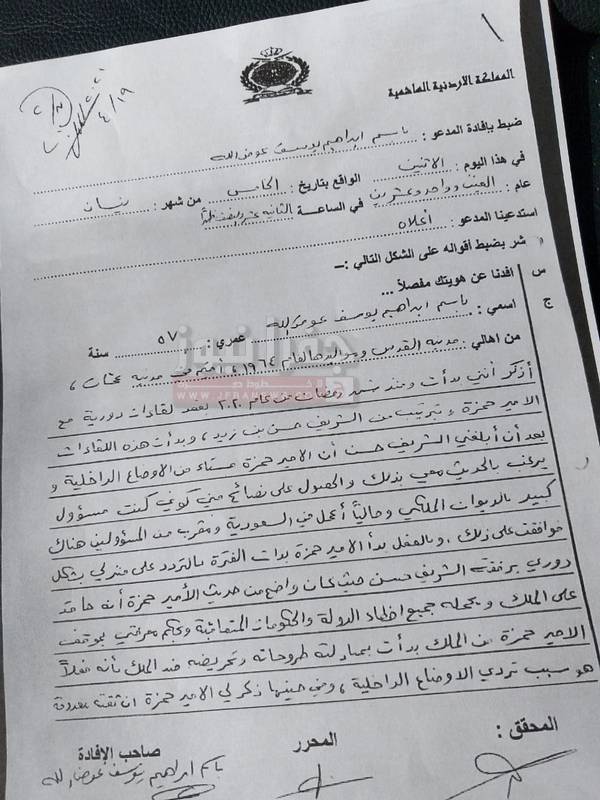 ١
المملكة الاردنية الهاشمية
٤/١٩
ضبط بإفادة المدعو : باسم ابراهيم يوسف عوض الله
في هذا اليوم : الاثنين الواقع بتاريخ : الخامس من شهر : نيسان
عام : الفين وواحد وعشرين في الساعة الثانية عشر والنصف ظهراً
استدعينا المدعو : أعلاه
شر بضبط أقواله على الشكل التالي :-
س افدنا عن هويتك مفصلاً ...
ج اسمي : باسم ابراهيم يوسف عوض الله عمري : ٥٧ سنة
من اهالي : مدينة القدس ومواليدها لعام ١٩٦٤ أقيم في مدينة عمان ،
أذكر أنني بدأت ومنذ شهر رمضان من عام ٢٠٢٠ بعقد لقاءات دورية مع
الامير حمزة وبترتيب من الشريف حسن بن زيد ، وبدأت هذه اللقاءات
بعد أن أبلغني الشريف حسن أن الامير حمزة مستاء من الاوضاع الداخلية و
يرغب بالحديث معي بذلك والحصول على نصائح مني كوني كنت مسؤول
كبير بالديوان الملكي وحالياً أعمل في السعودية ومقرب من المسؤولين هناك
فوافقت على ذلك ، وبالفعل بدأ الامير حمزة بذات الفترة بالتردد على منزلي بشكل
دوري برفقة الشريف حسن حيث كان واضح من حديث الأمير حمزة أنه حاقد
على الملك و يحمله جميع اخطاء الدولة والحكومات المتعاقبة وبحكم معرفتي بموقف
الامير حمزة من الملك بدأت بمبادلته طروحاته وتحريضه ضد الملك بأنه فعلاً
هو سبب تردي الاوضاع الداخلية ، وفي حينها ذكر لي الامير حمزة ان ثقته معدومة
المحقق : المحرر صاحب الإفادة
باسم ابراهيم يوسف عوض الله
جفرا نيوز